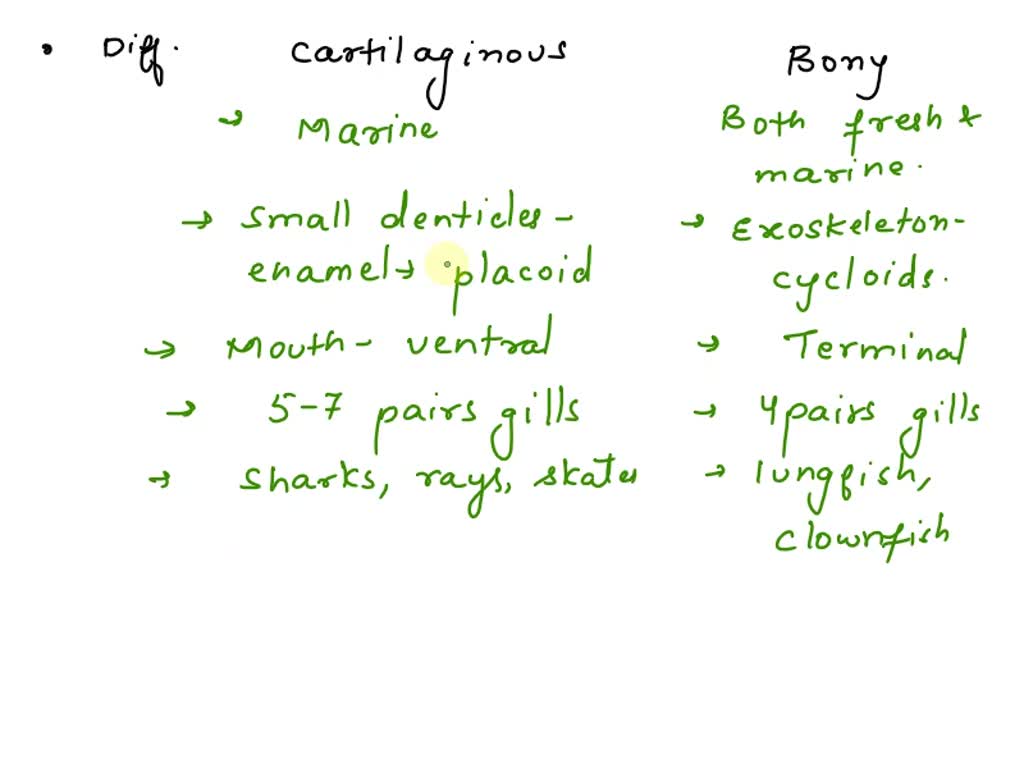 • Diff. Cartilaginous Bony
→ Marine Both fresh &
marine.
→ Small denticles - → Exoskeleton-
enamel → placoid cycloids.
→ Mouth - ventral → Terminal
→ 5-7 pairs gills → 4 pairs gills
→ Sharks, rays, skates → lungfish,
clownfish